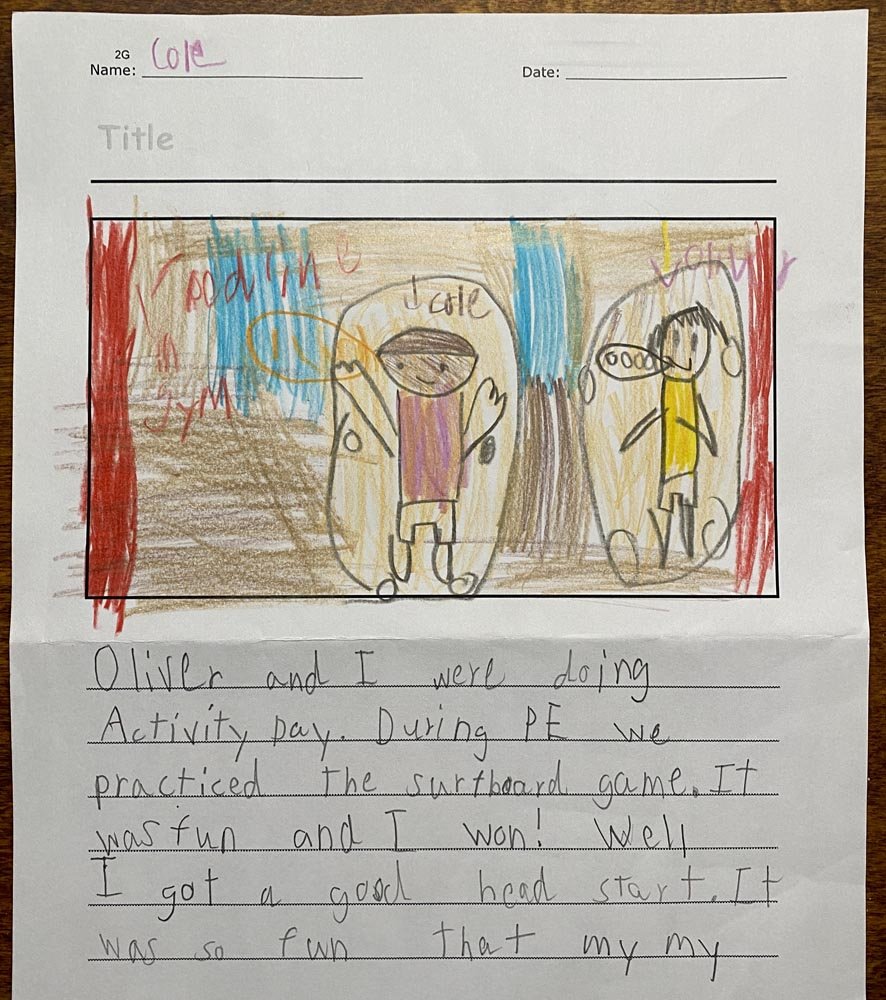 2G
Name: Cole
Date:
Title
in
gyM
cole
Oliver
Oliver and I were doing
Activity Day. During PE we
practiced the surfboard game. It
was fun and I won! Well
I got a good head start. It
was so fun that my my